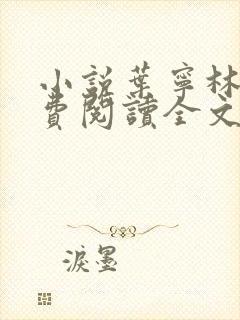 小說葉寧林
費閱讀全文
淚墨